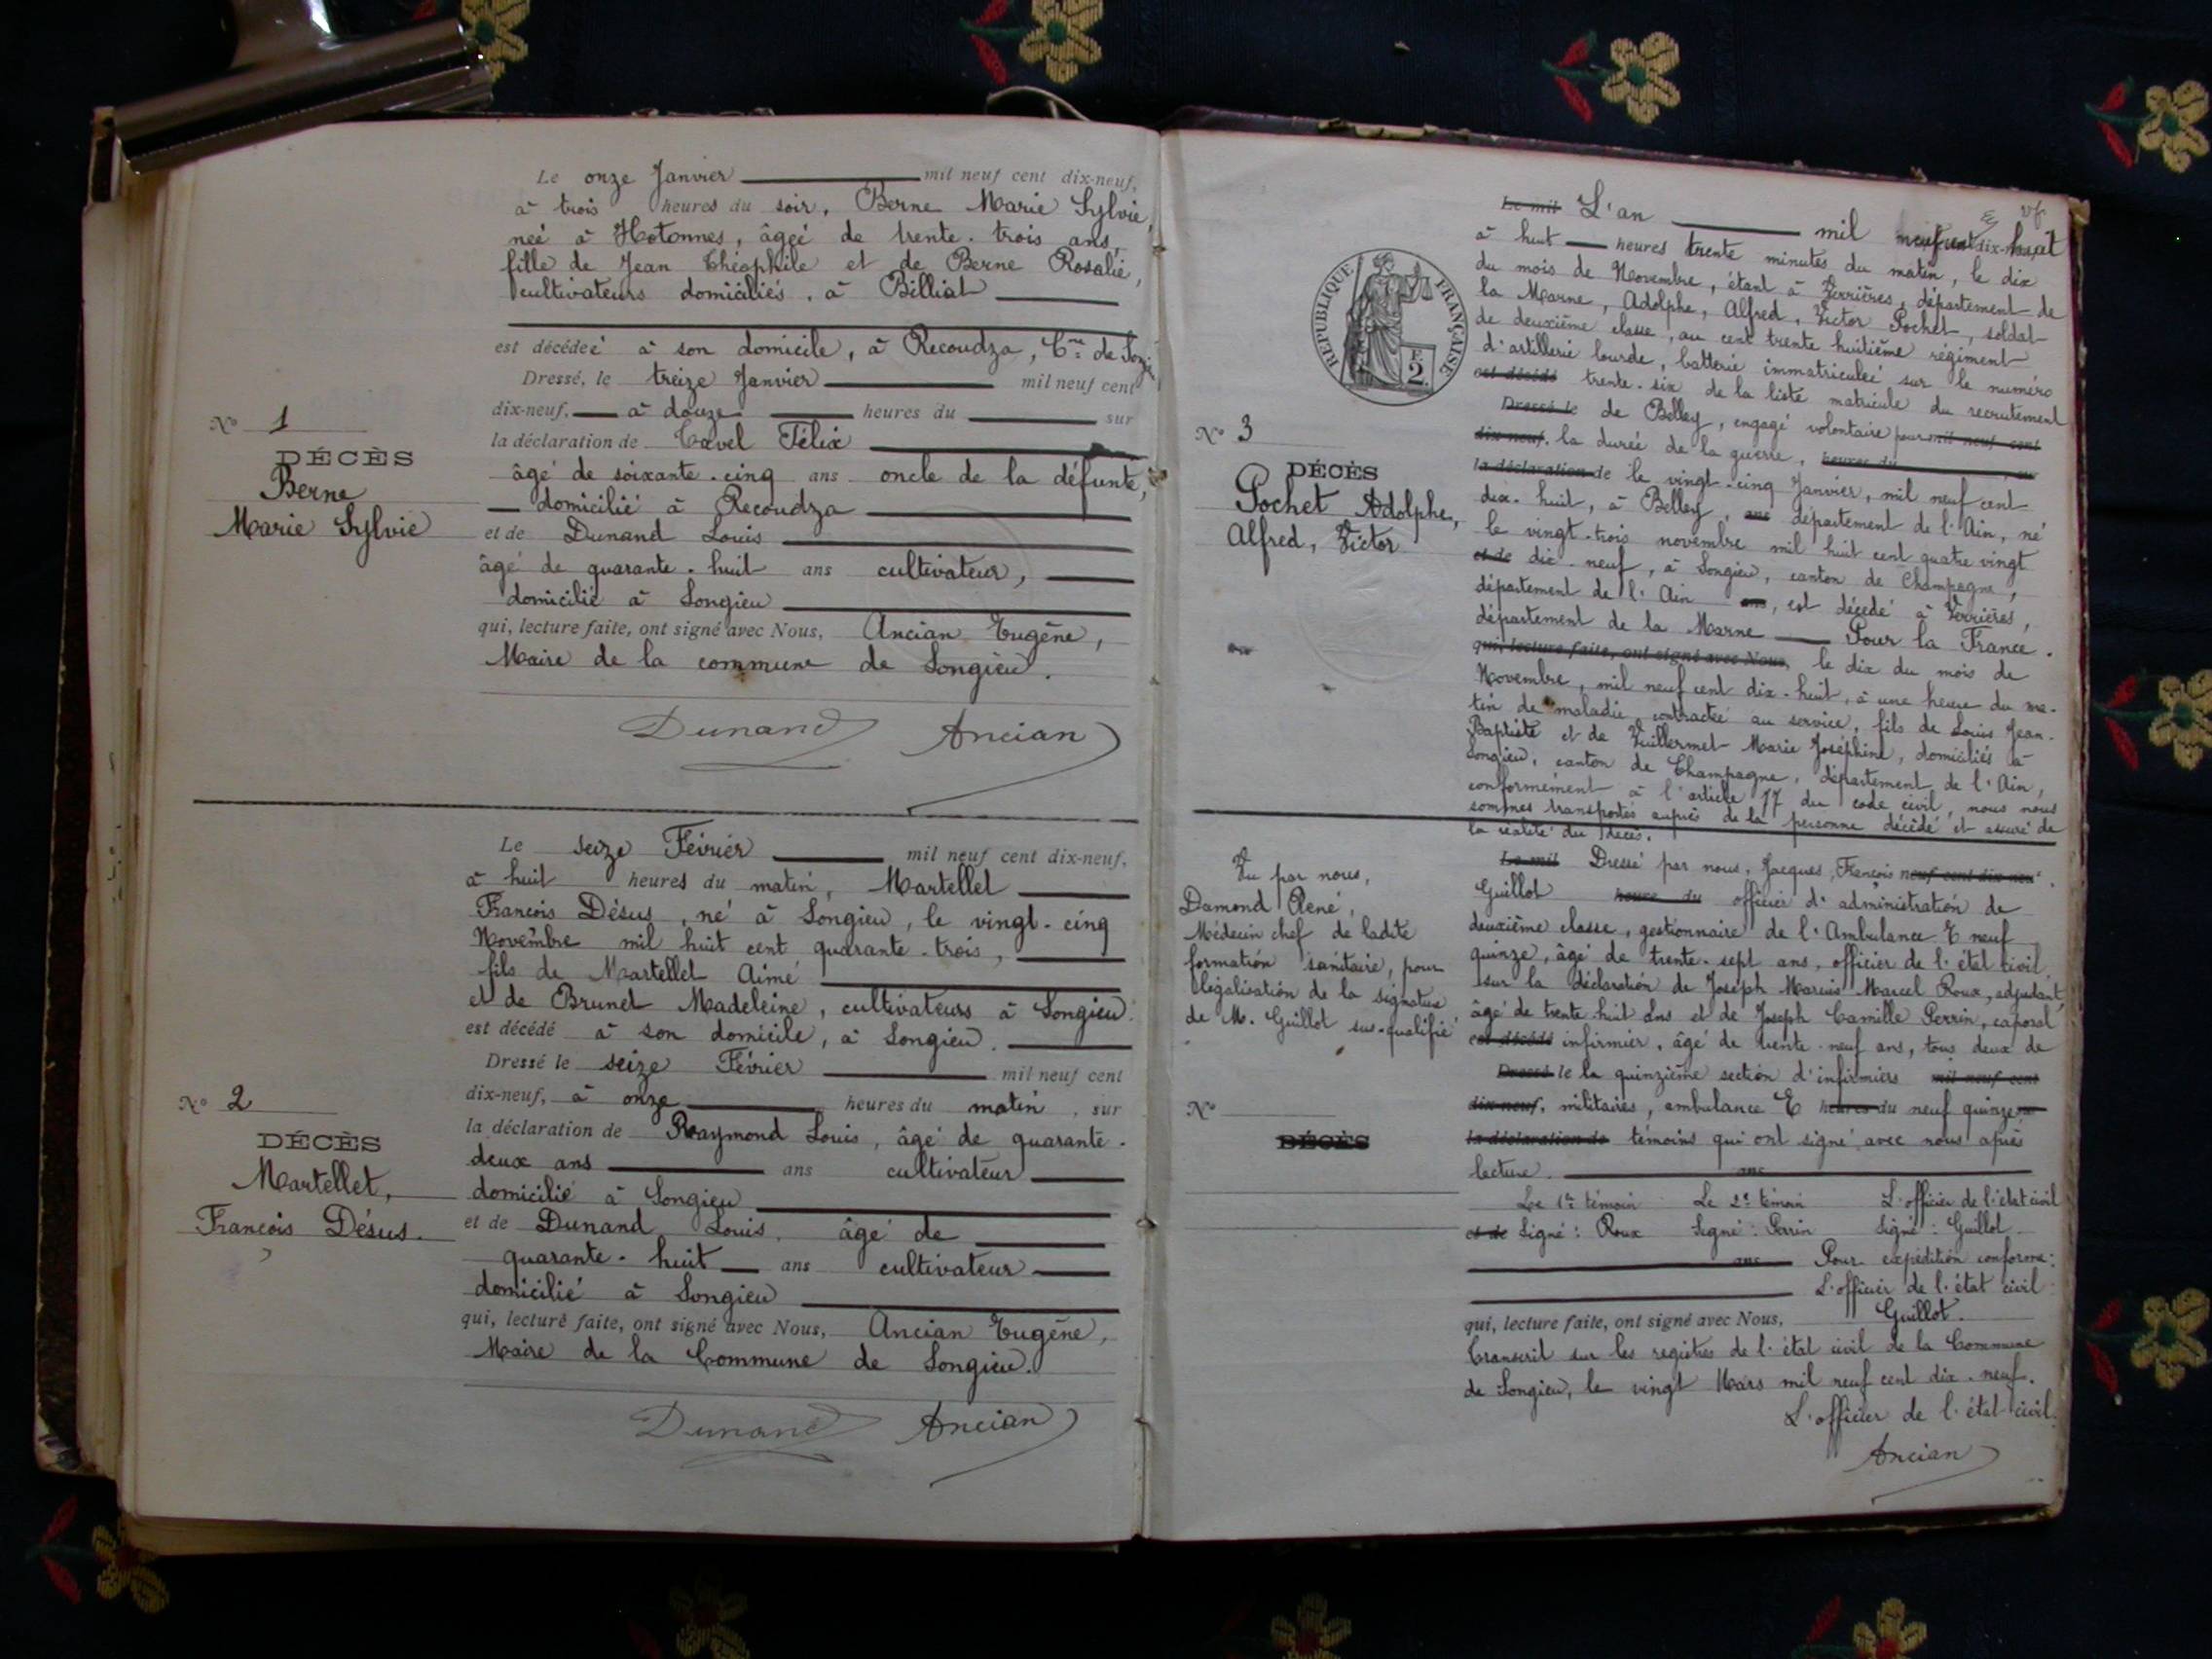 Le onze Janvier mil neuf cent dix-neuf,
à trois heures du soir, Berne Marie Sylvie,
née à Hotonnes, âgée de trente-trois ans,
fille de Jean Théophile et de Berne Rosalie,
cultivateurs domiciliés, à Billiat
est décédée à son domicile, à Recoudza, Cne de
Dressé, le treize Janvier mil neuf cent
dix-neuf, à douze heures du sur
la déclaration de Cavel Félix
âgé de soixante-cinq ans oncle de la défunte,
domicilié à Recoudza
et de Dunand Louis
âgé de quarante-huit ans cultivateur,
domicilié à Songieu
qui, lecture faite, ont signé avec Nous, Ancian Eugène,
Maire de la commune de Songieu.
Dunand Ancian
N° 1
DÉCÈS
Berne
Marie Sylvie
Le seize Février mil neuf cent dix-neuf,
à huit heures du matin, Martellet
François Désus, né à Songieu, le vingt-cinq
Novembre mil huit cent quarante-trois,
fils de Martellet Aimé
et de Brunet Madeleine, cultivateurs à Songieu.
est décédé à son domicile, à Songieu.
Dressé le seize Février mil neuf cent
dix-neuf, à onze heures du matin, sur
la déclaration de Raymond Louis, âgé de quarante-
deux ans ans cultivateur
domicilié à Songieu
et de Dunand Louis, âgé de
quarante-huit ans cultivateur
domicilié à Songieu
qui, lecture faite, ont signé avec Nous, Ancian Eugène,
Maire de la Commune de Songieu.
Dunand Ancian
N° 2
DÉCÈS
Martellet,
François Désus.
RÉPUBLIQUE FRANÇAISE
2
N° 3
DÉCÈS
Pochet Adolphe,
Alfred, Victor
Le mil L'an mil neuf cent dix-huit
à huit heures trente minutes du matin, le dix
du mois de Novembre, étant à Verrières, département de
la Marne, Adolphe, Alfred, Victor Pochet, soldat
de deuxième classe, au cent trente huitième régiment
d'artillerie lourde, batterie immatriculée sur le numéro
est décédé trente-six de la liste matricule du recrutement
Dressé le de Belley, engagé volontaire pour mil neuf cent
dix-neuf, la durée de la guerre, heures du sur
la déclaration de le vingt-cinq Janvier, mil neuf cent
dix-huit, à Belley, ans département de l'Ain, né
le vingt-trois novembre mil huit cent quatre vingt
et de dix-neuf, à Songieu, canton de Champagne,
département de l'Ain ans, est décédé à Verrières,
département de la Marne Pour la France.
qui, lecture faite, ont signé avec Nous, le dix du mois de
Novembre, mil neuf cent dix-huit, à une heure du ma-
tin de maladie contractée au service, fils de Louis Jean-
Baptiste et de Vuillermet Marie Joséphine, domiciliés à
Songieu, canton de Champagne, département de l'Ain,
conformément à l'article 77 du code civil, nous nous
sommes transportés auprès de la personne décédé et assuré de
la réalité du décès.
Le mil Dressé par nous, Jacques, François neuf cent dix-neuf
Guillot heure du officier d'administration de
deuxième classe, gestionnaire de l'Ambulance E neuf
quinze, âgé de trente-sept ans, officier de l'état civil,
sur la déclaration de Joseph Marius Marcel Roux, adjudant,
âgé de trente-huit ans et de Joseph Camille Perrin, caporal
est décédé infirmier, âgé de trente-neuf ans, tous deux de
Dressé le la quinzième section d'infirmiers mil neuf cent
dix-neuf, militaires, ambulance E heures du neuf quinze
la déclaration de témoins qui ont signé avec nous après
lecture. ans
Le 1er témoin Le 2e témoin L'officier de l'état civil
et de Signé : Roux Signé : Perrin Signé : Guillot
ans Pour expédition conforme :
L'officier de l'état civil
qui, lecture faite, ont signé avec Nous, Guillot.
Transcrit sur les registres de l'état civil de la Commune
de Songieu, le vingt Mars mil neuf cent dix-neuf.
L'officier de l'état civil.
Ancian
Vu par nous,
Damond René,
Médecin chef de ladite
formation sanitaire, pour
légalisation de la signature
de M. Guillot sus-qualifié
N°
DÉCÈS